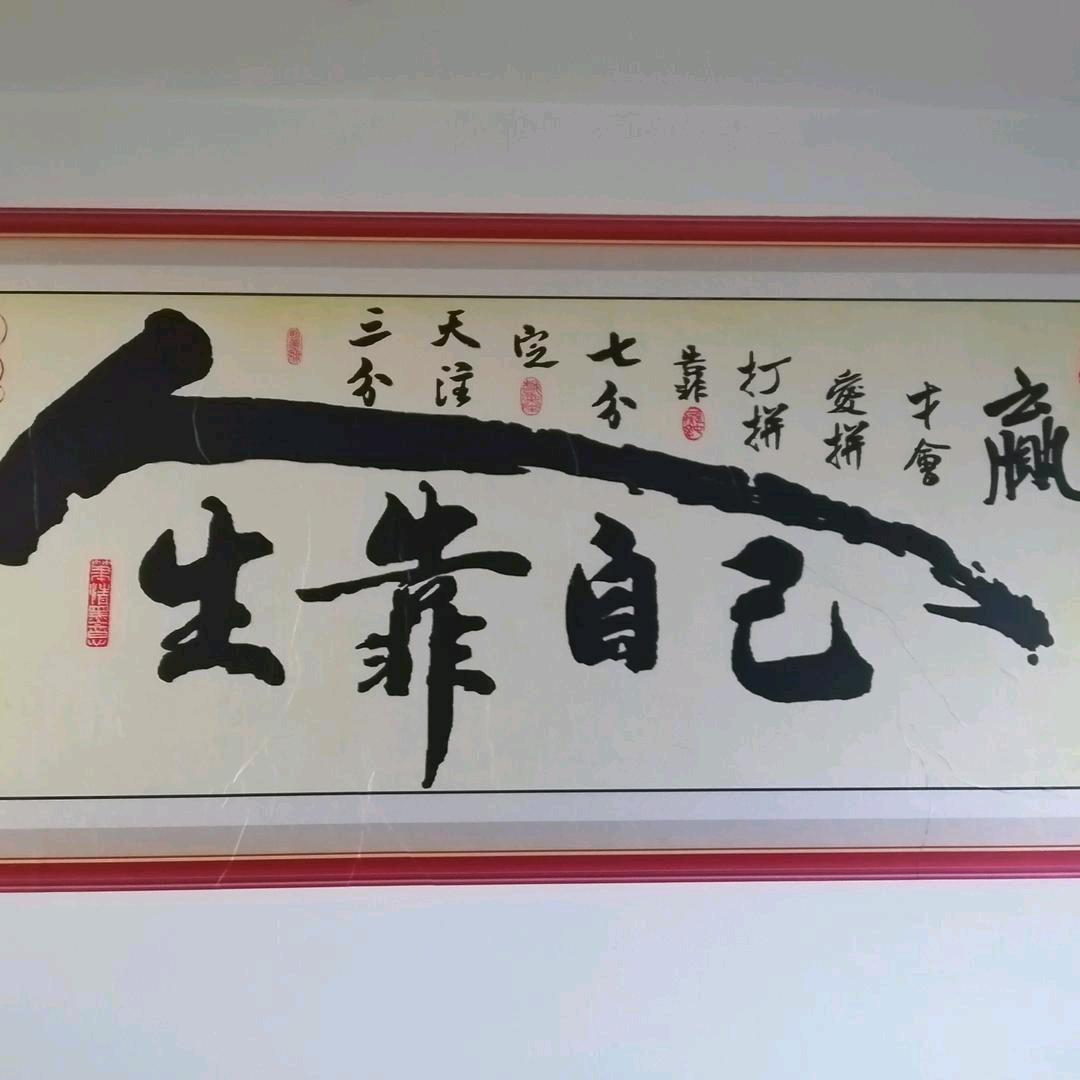 人生靠自己
三分
天注
定
七分
靠
打拼
愛拼
才會
贏